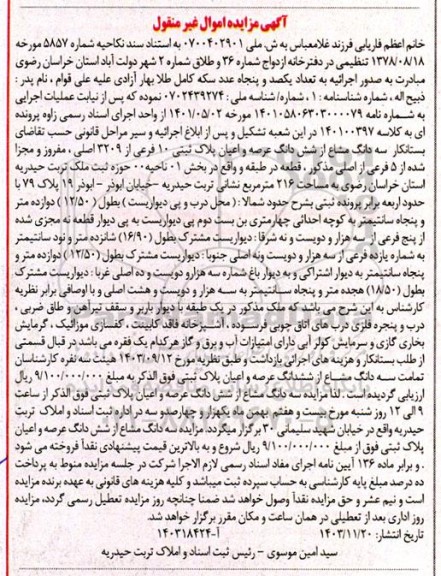 آگهی مزایده اموال غیر منقول
خانم اعظم فاریابی فرزند غلامعباس به ش. ملی ۰۷۰۰۴۰۲۹۰۱ به استناد سند نکاحیه شماره ۵۸۵۷ مورخه
۱۳۷۸/۰۸/۱۸ تنظیمی در دفترخانه ازدواج شماره ۳۶ و طلاق شماره ۲ شهر دولت آباد استان خراسان رضوی
مبادرت به صدور اجرائیه به تعداد یکصد و پنجاه عدد سکه کامل طلا بهار آزادی علیه علی قوام ، نام پدر :
ذبیح اله ، شماره شناسنامه : ۱ ، شماره/ شناسه ملی : ۰۷۰۲۴۳۹۲۷۴ نموده که پس از نیابت عملیات اجرایی
به شماره نامه ۱۴۰۱۰۵۸۰۶۳۰۳۰۰۰۰۷۹ مورخه ۱۴۰۱/۰۵/۰۲ از واحد اجرای اسناد رسمی زاوه پرونده
ای به کلاسه ۱۴۰۱۰۰۳۹۷ در این شعبه تشکیل و پس از ابلاغ اجرائیه و سیر مراحل قانونی حسب تقاضای
بستانکار سه دانگ مشاع از شش دانگ عرصه و اعیان پلاک ثبتی ۱۰ فرعی از ۳۲۰۹ اصلی ، مفروز و مجزا
شده از ۵ فرعی از اصلی مذکور ، قطعه در طبقه و واقع در بخش ۰۱ ناحیه ۰۰ حوزه ثبت ملک تربت حیدریه
استان خراسان رضوی به مساحت ۲۱۶ مترمربع نشانی تربت حیدریه -خیابان ابوذر - ابوذر ۱۹ پلاک ۷۹ با
حدود اربعه برابر پرونده ثبتی بشرح حدود شمالا : ( محل درب و پی دیواریست ) بطول (۱۲/۵۰) دوازده متر
و پنجاه سانتیمتر به کوچه احداثی چهارمتری بن بست دوم پی دیواریست به پی دیوار قطعه نه مجزی شده
از پنج فرعی از سه هزار و دویست و نه شرقا : دیواریست مشترک بطول (۱۶/۹۰) شانزده متر و نود سانتیمتر
به شماره یازده فرعی از سه هزار و دویست ونه اصلی جنوبا : دیواریست مشترک بطول (۱۲/۵۰) دوازده متر و
پنجاه سانتیمتر به دیوار اشتراکی و به دیوار باغ شماره سه هزارو دویست و ده اصلی غربا : دیواریست مشترک
بطول (۱۸/۵۰) هجده متر و پنجاه سانتیمتر به سه هزار و دویست و هشت اصلی و با اوصافی برابر نظریه
کارشناس به این شرح می باشد که ملک مذکور در یک طبقه با دیوار باربر و سقف تیرآهن و طاق ضربی ،
درب و پنجره فلزی درب های اتاق چوبی فرسوده ، آشپزخانه فاقد کابینت ، کفسازی موزائیک ، گرمایش
بخاری گازی و سرمایش کولر آبی دارای امتیازات آب و برق و گاز هرکدام یک فقره می باشد در قبال قسمتی
از طلب بستانکار و هزینه های اجرائی بازداشت و طبق نظریه مورخ ۱۴۰۳/۰۹/۱۲ هیئت سه نفره کارشناسان
تمامت سه دانگ مشاع از ششدانگ عرصه و اعیان پلاک ثبتی فوق الذکر به مبلغ ۹/۱۰۰/۰۰۰/۰۰۰ ریال
ارزیابی گردیده است . لذا مزایده سه دانگ مشاع از شش دانگ عرصه و اعیان پلاک ثبتی فوق الذکر از ساعت
۹ الی ۱۲ روز شنبه مورخ بیست و هفتم بهمن ماه یکهزار و چهارصدو سه در اداره ثبت اسناد و املاک تربت
حیدریه واقع در خیابان شهید سلیمانی ۳۰ برگزار میگردد مزایده سه دانگ مشاع از شش دانگ عرصه و اعیان
پلاک ثبتی فوق از مبلغ ۹/۱۰۰/۰۰۰/۰۰۰ ریال شروع و به بالاترین قیمت پیشنهادی نقداً فروخته می شود
. و برابر ماده ۱۳۶ آیین نامه اجرای مفاد اسناد رسمی لازم الاجرا شرکت در جلسه مزایده منوط به پرداخت
ده درصد مبلغ پایه کارشناسی به حساب سپرده ثبت میباشد و کلیه هزینه های قانونی به عهده برنده مزایده
است و نیم عشر و حق مزایده نقداً وصول خواهد شد ضمنا چنانچه روز مزایده تعطیل رسمی گردد، مزایده
روز اداری بعد از تعطیلی در همان ساعت و مکان مقرر برگزار خواهد شد.
تاریخ انتشار: ۱۴۰۳/۱۱/۲۰ آ-۱۴۰۳۱۸۴۲۴
سید امین موسوی - رئیس ثبت اسناد و املاک تربت حیدریه